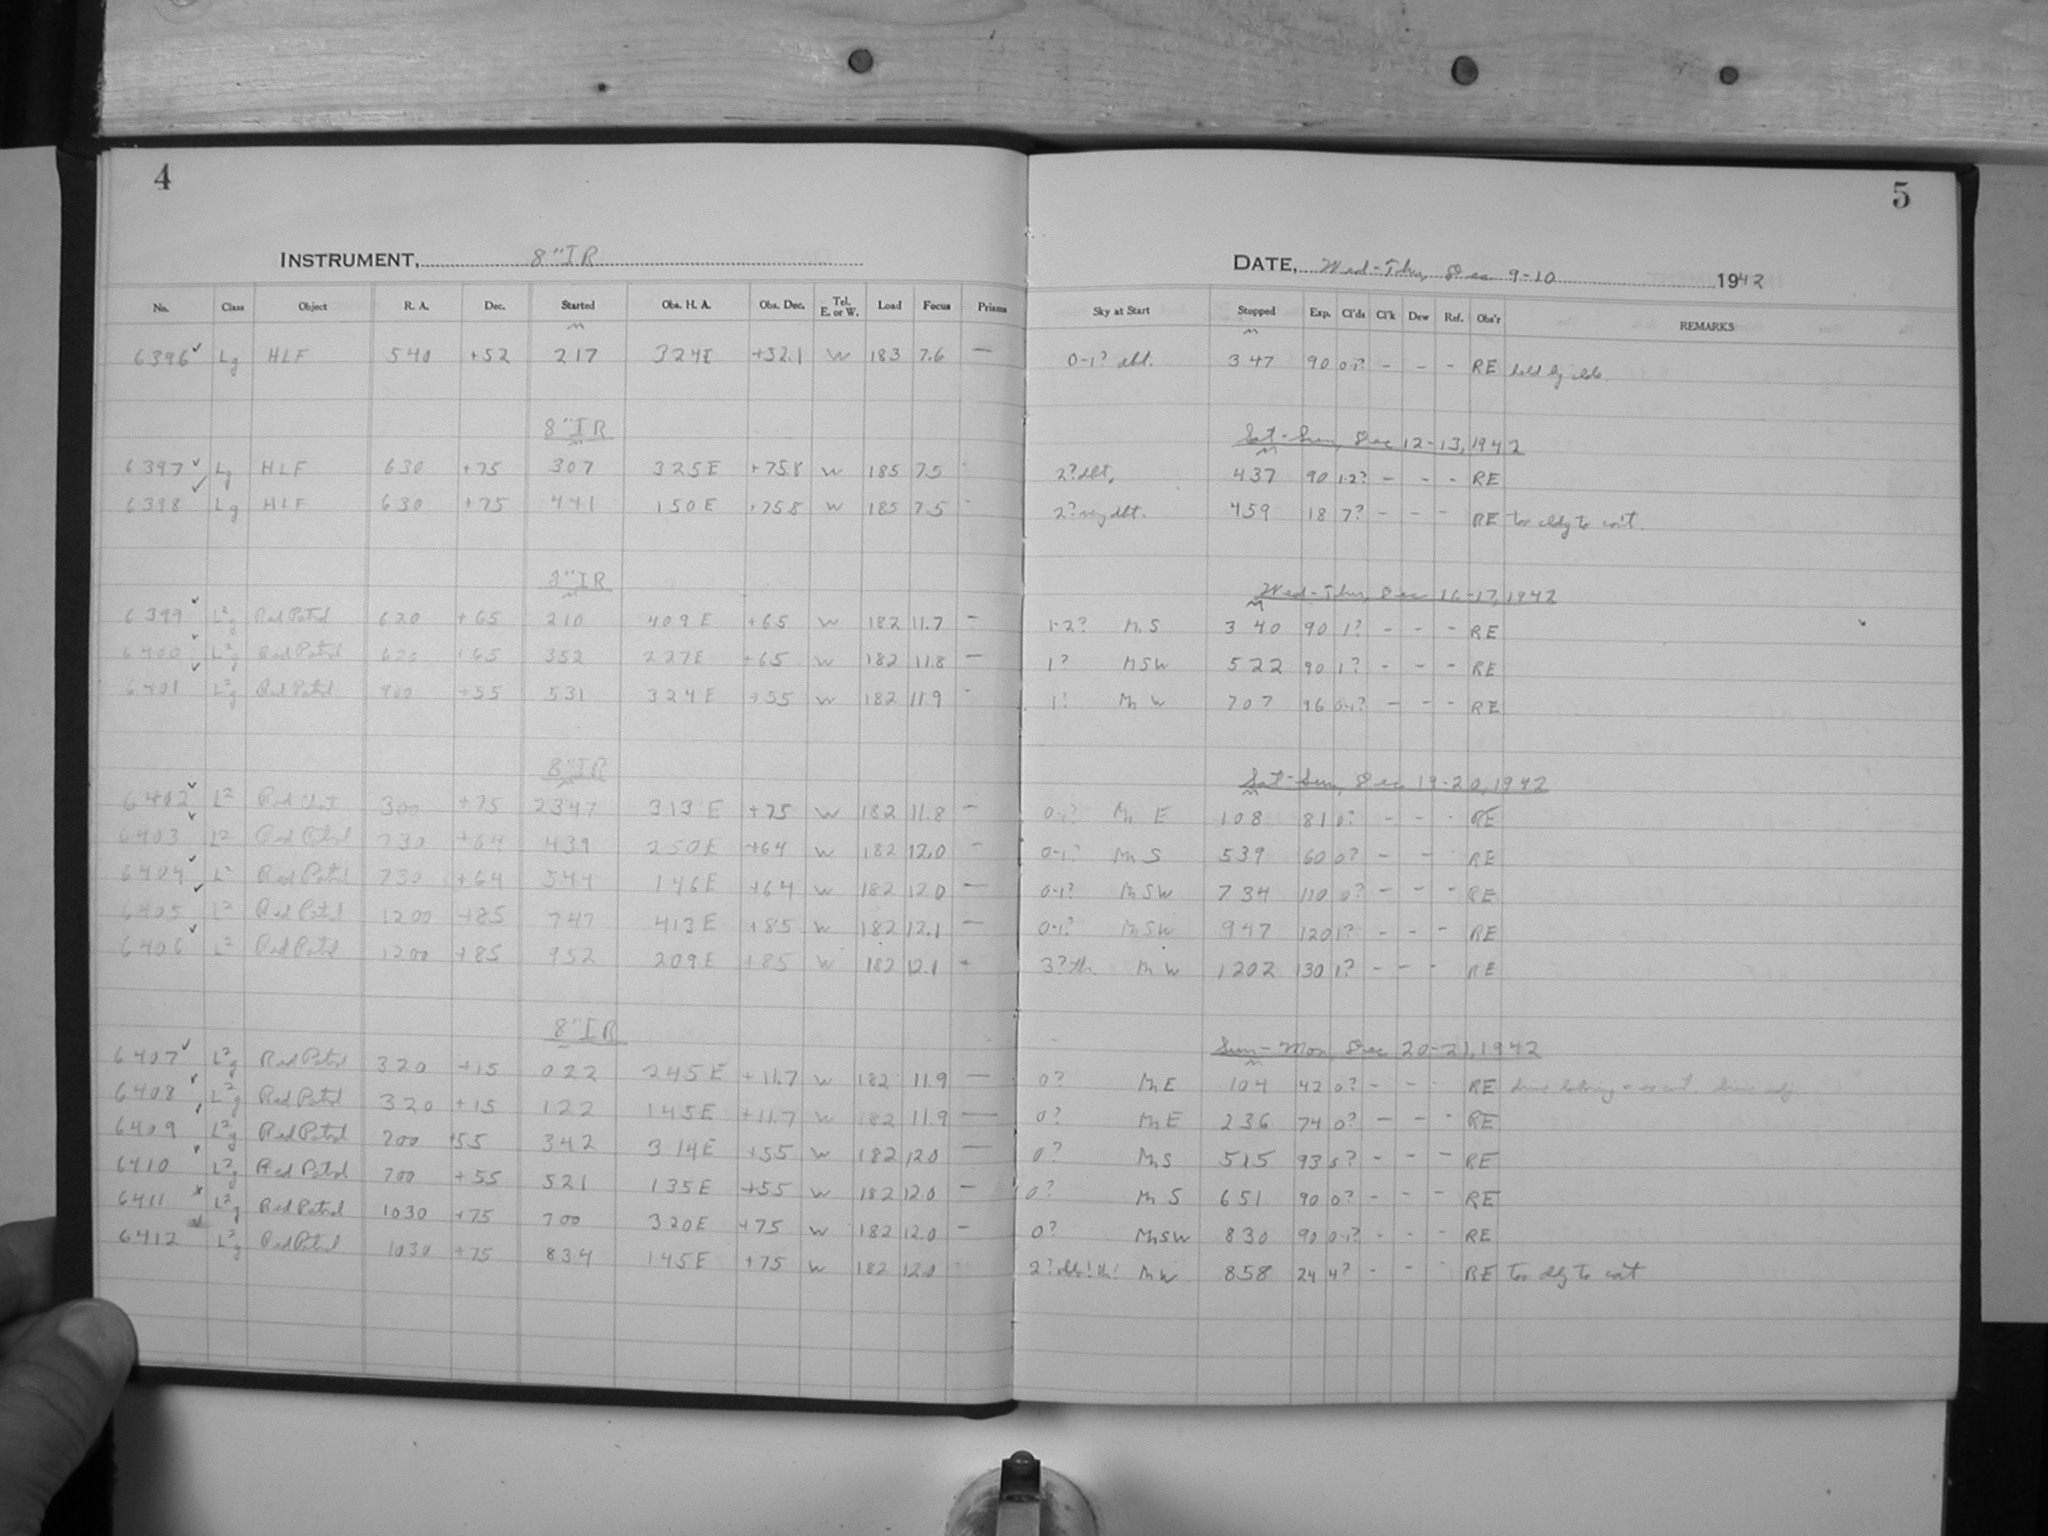 4
INSTRUMENT, 8" IR
No. Class Object R. A. Dec. Started Obs. H. A. Obs. Dec. Tel. E. or W. Load Focus Prisms
6396 ✓ Lg HLF 540 +52 217 324E +52.1 W 183 7.6 —
8" IR
6397 ✓ Lg HLF 630 +75 307 325E +75.8 W 185 7.5
6398 ✓ Lg HLF 630 +75 441 150E +75.8 W 185 7.5
8" IR
6399 ✓ L²g Red Patrol 620 +65 210 409E +65 W 182 11.7 —
6400 ✓ L²g Red Patrol 620 +65 352 227E +65 W 182 11.8 —
6401 ✓ L²g Red Patrol 900 +55 531 324E +55 W 182 11.9
8" IR
6402 ✓ L² 300 +75 2347 313E +75 W 182 11.8 —
6403 ✓ L² Red Patrol 730 +64 439 250E +64 W 182 12.0 —
6404 ✓ L² Red Patrol 730 +64 544 146E +64 W 182 12.0 —
6405 ✓ L² Red Patrol 1200 +85 747 413E +85 W 182 12.1 —
6406 ✓ L² Red Patrol 1200 +85 952 209E +85 W 182 12.1
8" IR
6407 ✓ L²g Red Patrol 320 +15 022 245E +11.7 W 182 11.9 —
6408 ✓ L²g Red Patrol 320 +15 122 145E +11.7 W 182 11.9 —
6409 L²g Red Patrol 700 +55 342 314E +55 W 182 12.0 —
6410 L²g Red Patrol 700 +55 521 135E +55 W 182 12.0 —
6411 L²g Red Patrol 1030 +75 700 320E +75 W 182 12.0 —
6412 L²g Red Patrol 1030 +75 834 145E +75 W 182 12.1
5
DATE, Wed-Thu, Dec 9-10 1942
Sky at Start Stopped Exp. Cl'ds Cl'k Dew Ref. Obs'r REMARKS
0-1? dbt. 347 90 0-1? - - - RE held by clds.
Sat-Sun, Dec 12-13, 1942
2? dbt, 437 90 1-2? - - - RE
2? very dbt. 459 18 7? - - - RE too cldy to con't.
Wed-Thu, Dec 16-17, 1942
1-2? Mn S 340 90 1? - - - RE
1? Mn SW 522 90 1? - - - RE
1? Mn W 707 96 0-1? - - - RE
Sat-Sun, Dec 19-20, 1942
0-1? Mn E 108 81 0? - - - RE
0-1? Mn S 539 60 0? - - RE
0-1? Mn SW 734 110 0? - - - RE
0-1? Mn SW 947 120 1? - - - RE
3? th. Mn W 1202 130 1? - - - RE
Sun-Mon, Dec 20-21, 1942
0? Mn E 104 42 0? - - - RE drive
0? Mn E 236 74 0? - - - RE
0? Mn S 515 93 0? - - - RE
0? Mn S 651 90 0? - - - RE
0? Mn SW 830 90 0-1? - - - RE
2? Mn W 858 24 4? - - - RE too cldy to con't